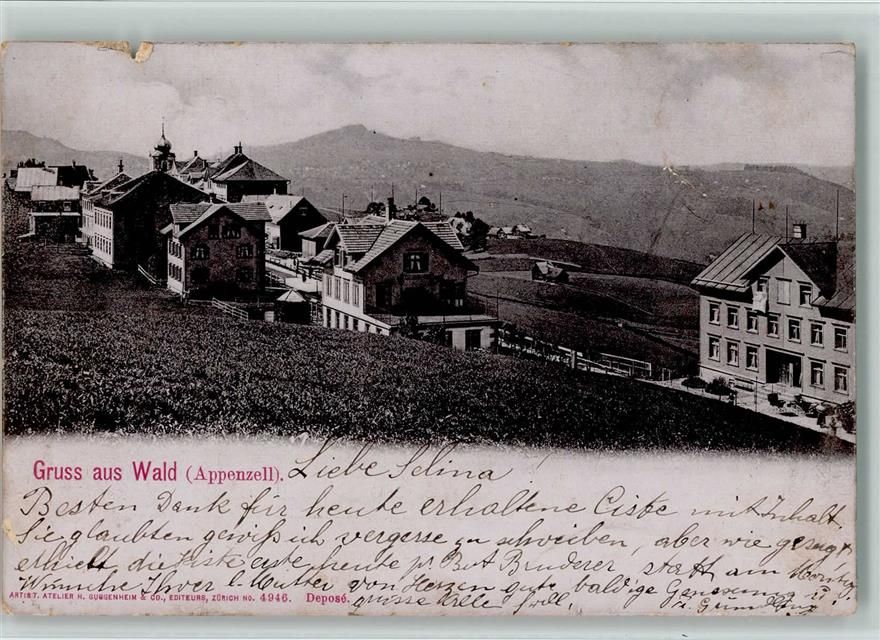 Gruss aus Wald (Appenzell). Liebe Selina!
Besten Dank für heute erhaltene Ciste mit Inhalt,
Sie glaubten gewiß ich vergesse zu schreiben, aber wie gesagt
erhielt die Ciste erste heute pr. Bot Bruderer statt am Montag
Wünsche Ihrer l. Mutter von Herzen gute baldige Genesung u.
ARTIST. ATELIER H. GUGGENHEIM & CO., EDITEURS, ZÜRICH NO. 4946. Deposé. grüsse Alle